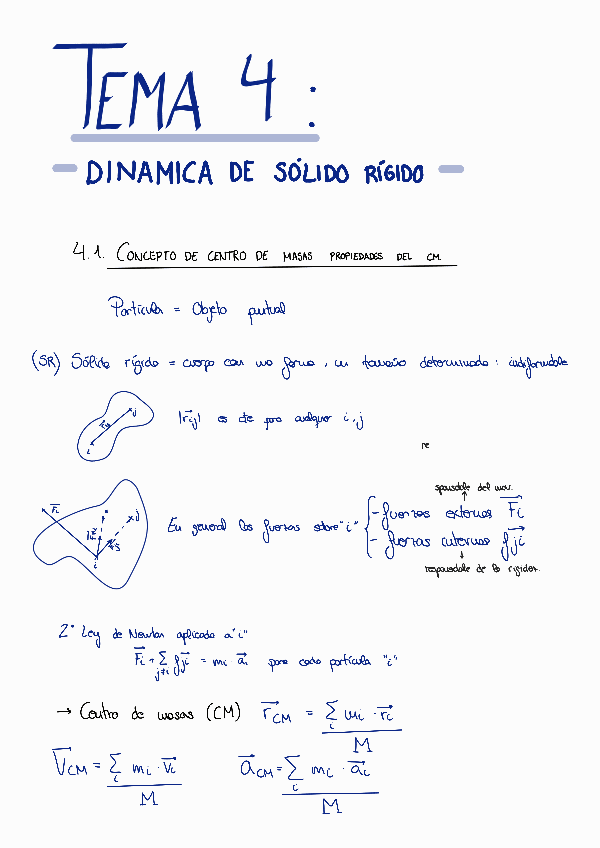 TEMA 4 :
DINAMICA DE SÓLIDO RÍGIDO
4.1. CONCEPTO DE CENTRO DE MASAS PROPIEDADES DEL CM
Partícula = Objeto puntual
(SR) Sólido rígido = cuerpo con una forma, un tamaño determinado : indeformable
|r⃗ij| es cte para cualquier i, j
re
sponsable del mov.
En general las fuerzas sobre "i" { - fuerzas externas F⃗i
- fuerzas internas f⃗ji
responsable de la rigidez.
2ª Ley de Newton aplicada a "i"
F⃗i + ∑j≠i f⃗ji = mi · a⃗i para cada partícula "i"
→ Centro de masas (CM) r⃗CM = ∑i mi · r⃗i / M
V⃗CM = ∑i mi · v⃗i / M a⃗CM = ∑i mi · a⃗i / M